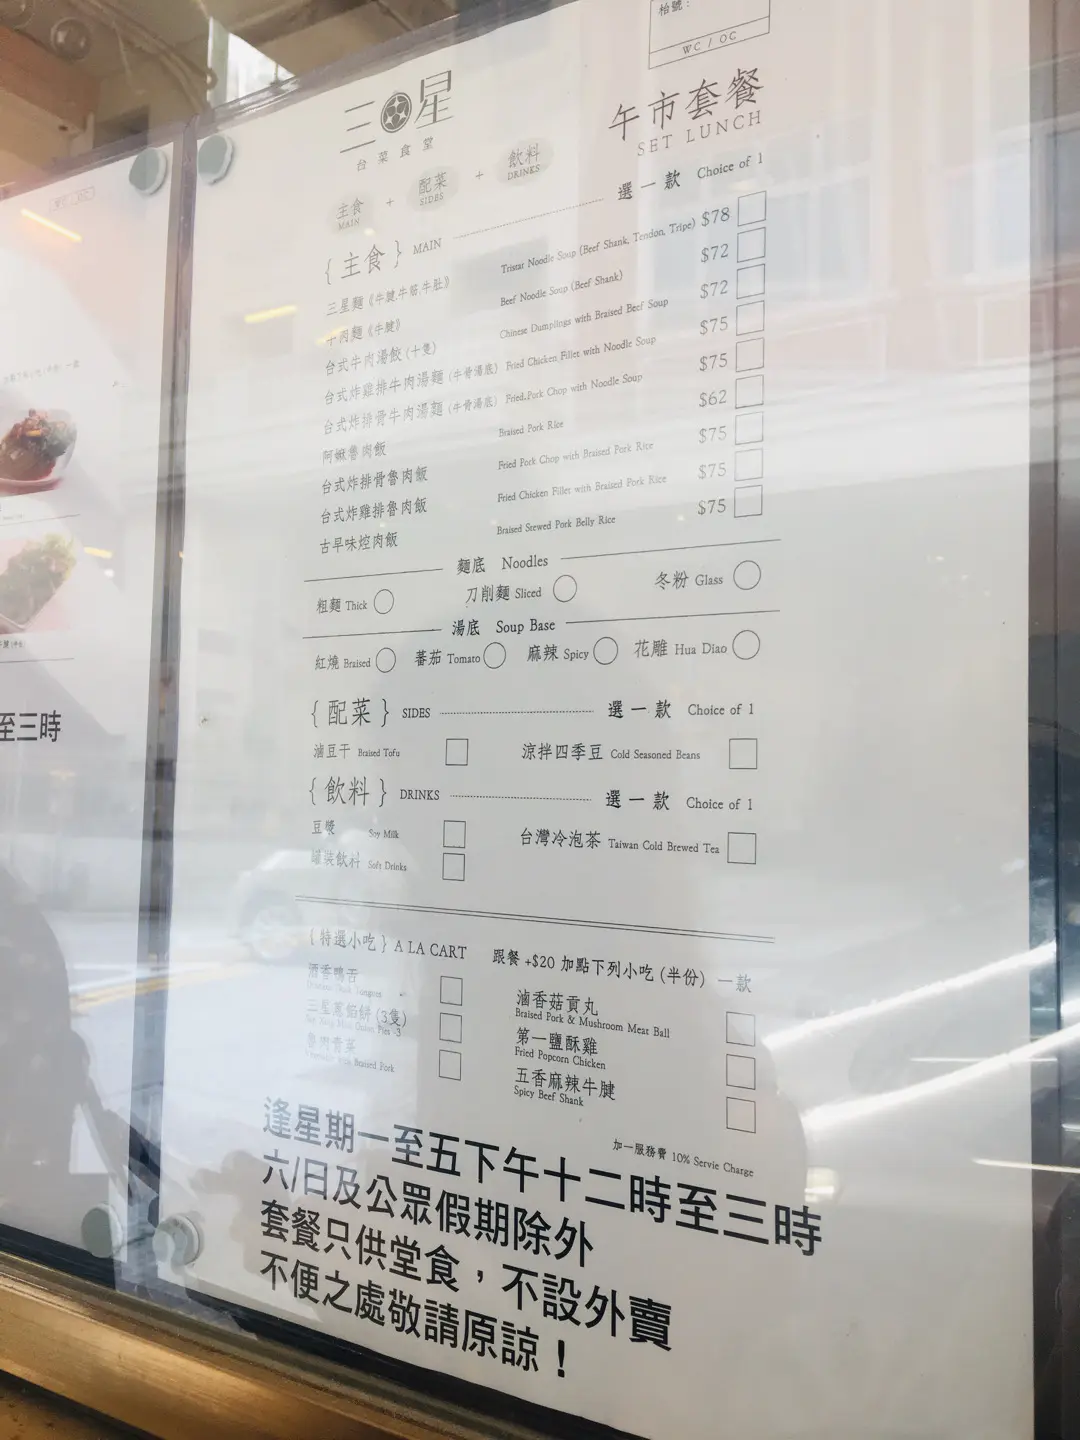 枱號：
WC / OC
三星
台菜食堂
午市套餐
SET LUNCH
主食 + 配菜 + 飲料
MAIN SIDES DRINKS
{ 主食 } MAIN 選一款 Choice of 1
三星麵《牛腱.牛筋.牛肚》 Tristar Noodle Soup (Beef Shank, Tendon, Tripe) $78
牛肉麵《牛腱》 Beef Noodle Soup (Beef Shank) $72
台式牛肉湯餃 (十隻) Chinese Dumplings with Braised Beef Soup $72
台式炸雞排牛肉湯麵 (牛骨湯底) Fried Chicken Fillet with Noodle Soup $75
台式炸排骨牛肉湯麵 (牛骨湯底) Fried Pork Chop with Noodle Soup $75
阿嫲魯肉飯 Braised Pork Rice $62
台式炸排骨魯肉飯 Fried Pork Chop with Braised Pork Rice $75
台式炸雞排魯肉飯 Fried Chicken Fillet with Braised Pork Rice $75
古早味焢肉飯 Braised Stewed Pork Belly Rice $75
麵底 Noodles
粗麵 Thick 刀削麵 Sliced 冬粉 Glass
湯底 Soup Base
紅燒 Braised 蕃茄 Tomato 麻辣 Spicy 花雕 Hua Diao
{ 配菜 } SIDES 選一款 Choice of 1
滷豆干 Braised Tofu 涼拌四季豆 Cold Seasoned Beans
{ 飲料 } DRINKS 選一款 Choice of 1
豆漿 Soy Milk 台灣冷泡茶 Taiwan Cold Brewed Tea
罐裝飲料 Soft Drinks
{ 特選小吃 } A LA CART 跟餐 +$20 加點下列小吃 (半份) 一款
酒香鴨舌
三星蔥餡餅 (3隻)
魯肉青菜
Braised Pork
滷香菇貢丸
Braised Pork & Mushroom Meat Ball
第一鹽酥雞
Fried Popcorn Chicken
五香麻辣牛腱
Spicy Beef Shank
加一服務費 10% Servie Charge
逢星期一至五下午十二時至三時
六/日及公眾假期除外
套餐只供堂食，不設外賣
不便之處敬請原諒！
至三時